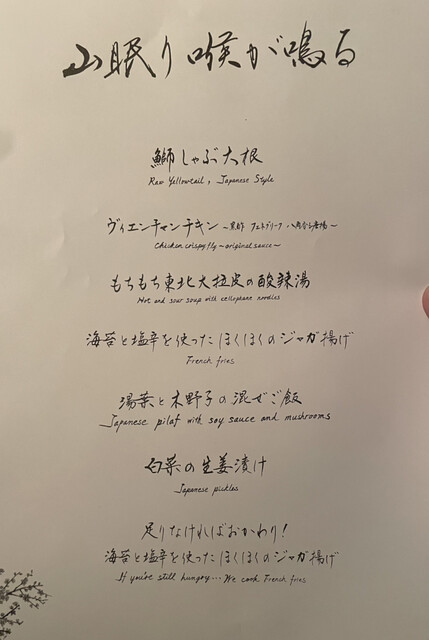 山眠り喉が鳴る
鰤しゃぶ大根
Raw Yellowtail, Japanese Style
ヴィエンチャンチキン
Chicken crispy fly ~original sauce~
もちもち東北大拉皮の酸辣湯
Hot and sour soup with cellophane noodles
海苔と塩辛を使ったほくほくのジャガ揚げ
French fries
湯葉と木野子の混ぜご飯
Japanese pilaf with soy sauce and mushrooms
白菜の生姜漬け
Japanese pickles
足りなければおかわり!
海苔と塩辛を使ったほくほくのジャガ揚げ
If you're still hungry... We cook French fries